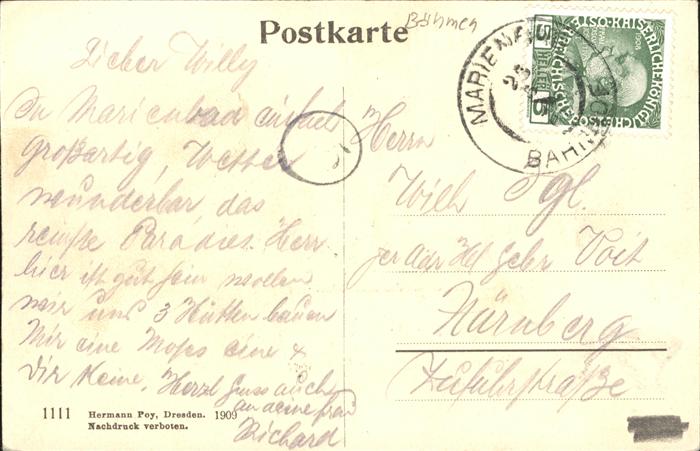 Postkarte
Böhmen
Lieber Willy
In Marienbad einfach
großartig, Wetter
wunderbar, das
reinste Paradies. Herr
hier ist gut sein wollen
wir uns 3 Hütten bauen
Mir eine Moses eine &
Dir keine. Herzl Gruss auch
an deine Frau
Richard
Herrn
Wilh
Voit
Nürnberg
Zufuhrstraße
MARIENBAD
BAHNHOF
25
5 HELLER 5
KAISERLICHE KÖNIGLICHE
1908
1111 Hermann Poy, Dresden. 1909
Nachdruck verboten.